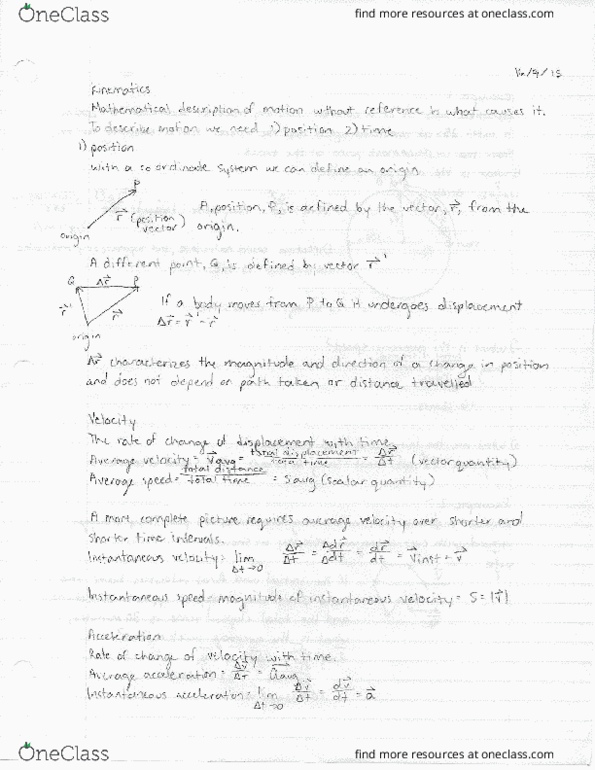 OneClass
find more resources at oneclass.com
Kinematics
Mathematical description of motion without reference to what causes it.
To describe motion we need 1) position 2) time
1) position
With a co ordinade system we can define an origin
P
r⃗ (position vector)
origin
A, position, P, is defined by the vector, r⃗, from the
origin.
A different point, Q, is defined by vector r⃗'
Q Δr⃗ P
r⃗' r⃗
origin
If a body moves from P to Q it undergoes displacement
Δr⃗ = r⃗' - r⃗
Δr⃗ characterizes the magnitude and direction of a change in position
and does not depend on path taken or distance travelled
Velocity
The rate of change of displacement with time.
Average velocity = v⃗avg = total displacement / total time = Δr⃗/Δt (vector quantity)
Average speed = total distance / total time = Savg (scalar quantity)
A more complete picture requires average velocity over shorter and
shorter time intervals.
Instantaneous velocity = lim Δt→0 Δr⃗/Δt = Δdr⃗/Δdt = dr⃗/dt = v⃗inst = v⃗
Instantaneous speed = magnitude of instantaneous velocity = S = |v⃗|
Acceleration
Rate of change of velocity with time.
Average acceleration = Δv⃗/Δt = a⃗avg
Instantaneous acceleration = lim Δt→0 Δv⃗/Δt = dv⃗/dt = a⃗
OneClass
find more resources at oneclass.com